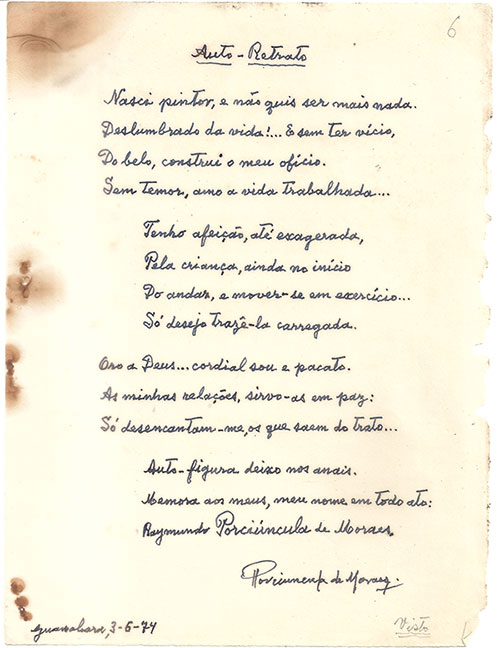 6
Auto-Retrato
Nasci pintor, e não quis ser mais nada.
Deslumbrado da vida!... E sem ter vício,
Do belo, construi o meu ofício.
Sem temor, amo a vida trabalhada...
Tenho afeição, até exagerada,
Pela criança, ainda no início
Do andar, e mover-se em exercício...
Só desejo trazê-la carregada.
Oro a Deus... cordial sou e pacato.
As minhas relações, sirvo-as em paz:
Só desencantam-me, os que saem do trato...
Auto-figura deixo nos anais.
Memora aos meus, meu nome em todo ato:
Raymundo Porciúncula de Moraes.
Porciuncula de Moraes.
Guanabara, 3-6-74
Visto